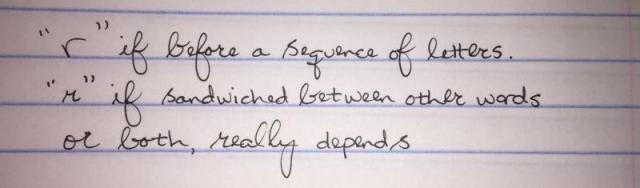 "r" if before a sequence of letters.
"r" if sandwiched between other words
or both, really depends